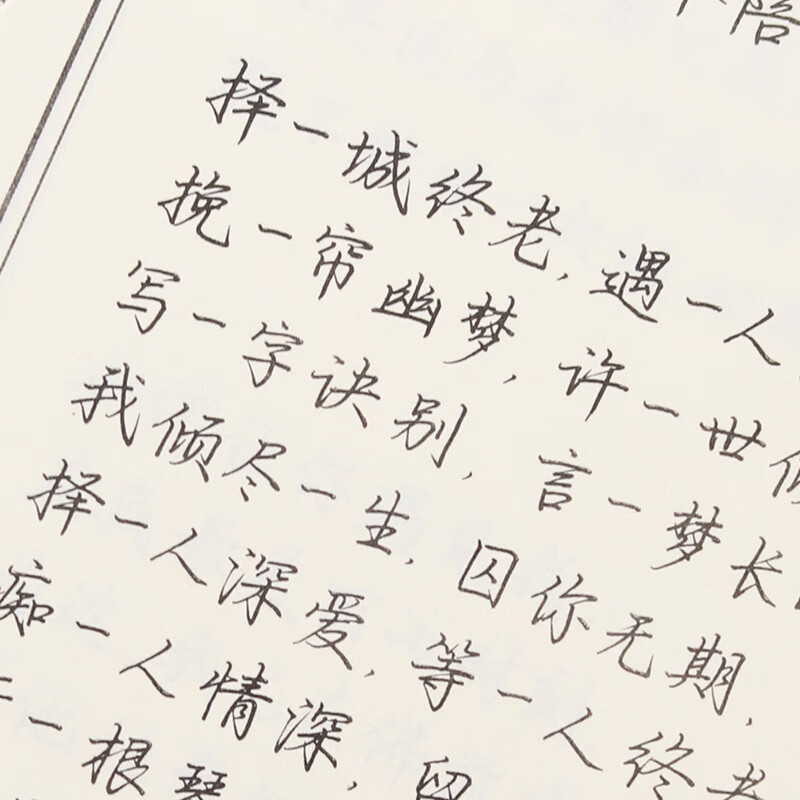 陪
择一城终老,遇一人
挽一帘幽梦,许一世倾
写一字诀别,言一梦长
我倾尽一生,囚你无期,
择一人深爱,等一人终老
痴一人情深,留
一根琴